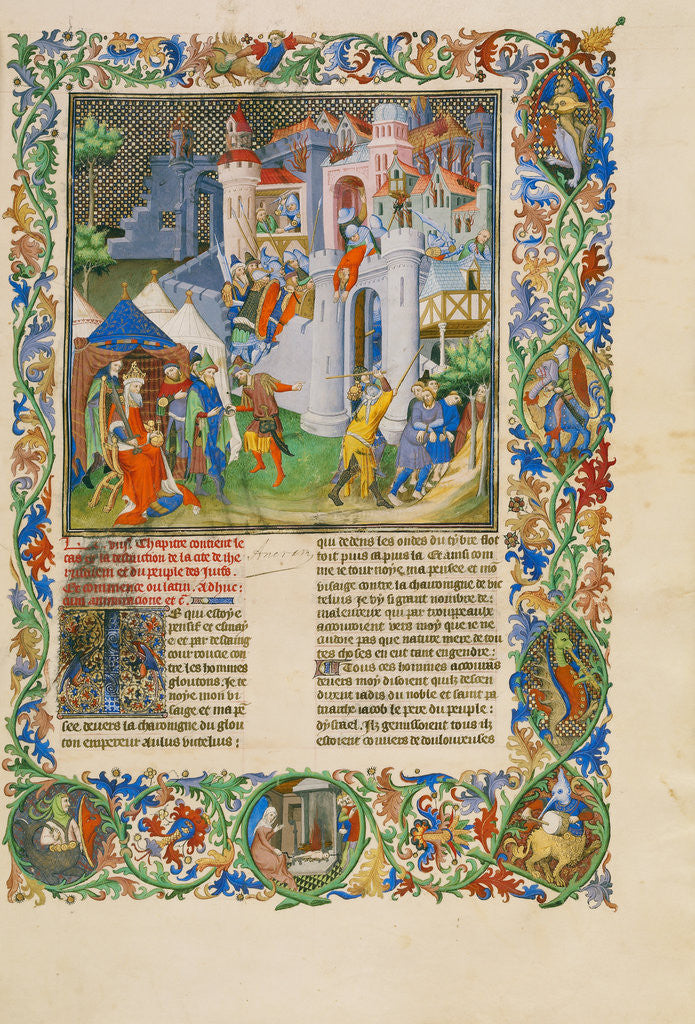 viii. Chapitre contient le
cas et la destruction de la cite de ihe
rusalem et du peuple des Juifs.
Et commence ou latin. Adhuc
et c.
E qui estoye
pensif et esmay
e et par desdaing
courroucie con
tre les hommes
gloutons. Je to
noye mon vi
saige et ma pe
see devers la charoingne du glou
ton empereur Aulus victelius;
qui dedens les ondes du tybre flot
toit puis ca puis la. Et ainsi com
me ie tournoye ma pensee et mo
visaige contre la charoingne de vic
telius ie vy si grant nombre de
maleureux qui par trouppeaux
accouroient vers moy que ie ne
cuidoie pas que nature mere de tou
tes choses en eut tant engendre;
Tous ces hommes accourás
devers moy disoient quilz descen
dirent iadis du noble et saint pa
triarche iacob le pere du peuple
dysrael. Ilz gemissoient tous ilz
estoient couvers de douloureuses